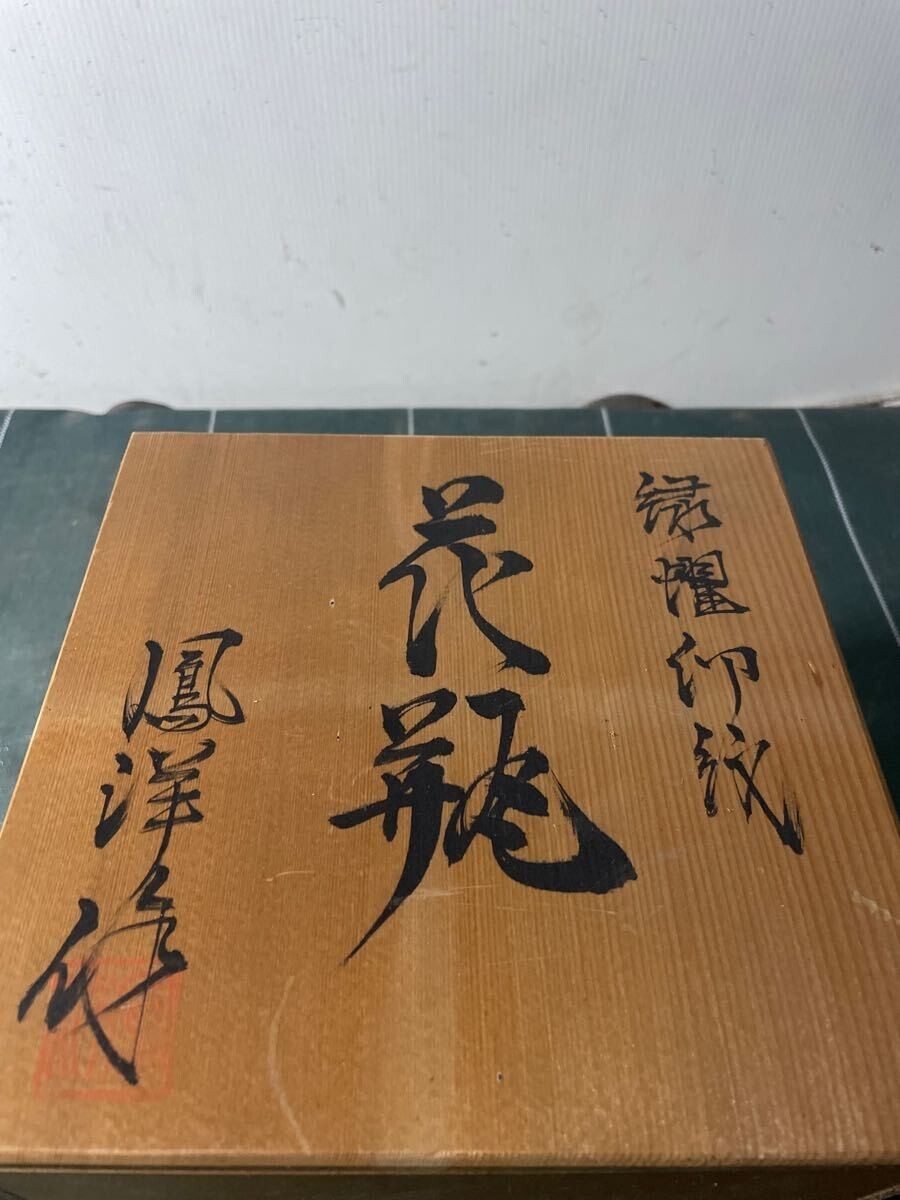 緑耀印紋
花瓶
鳳洋作